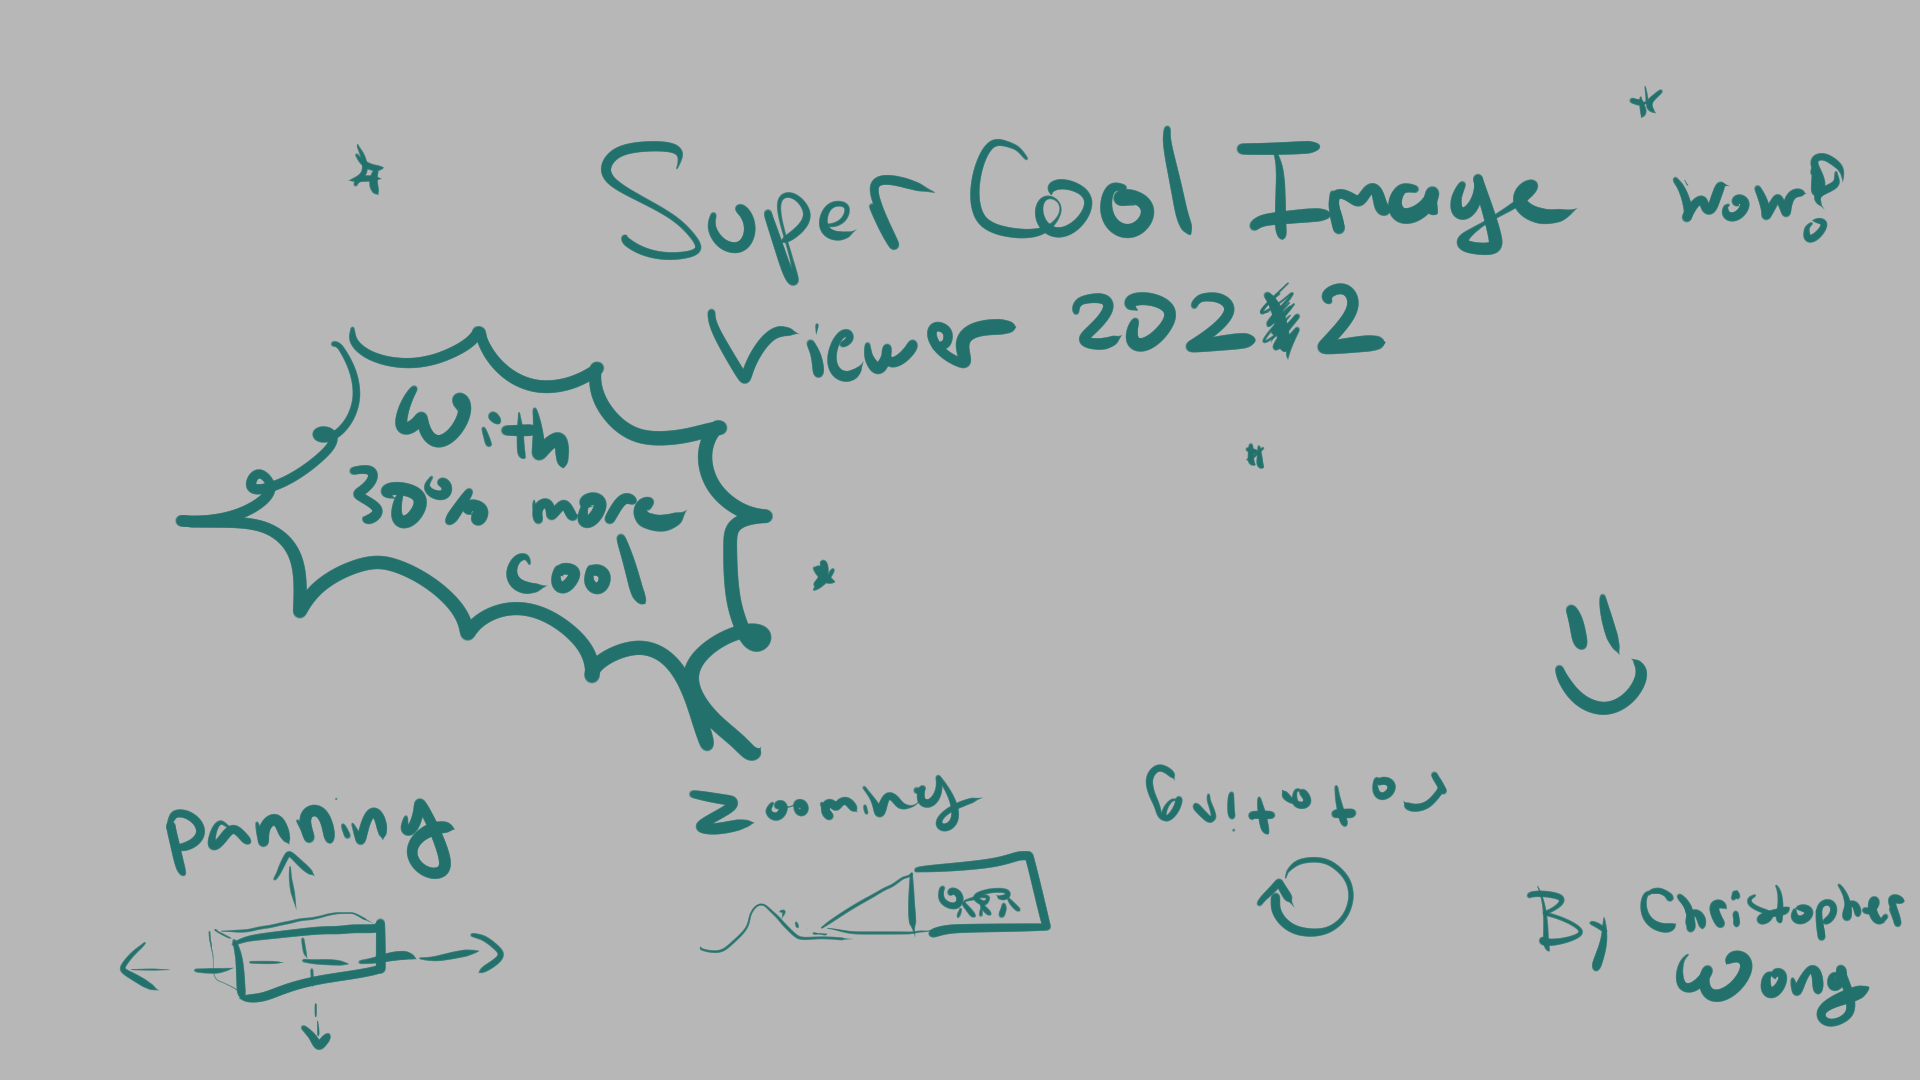 Super Cool Image
Viewer 2022
wow!
With
30% more
cool
panning
zooming
rotating
By Christopher
Wong